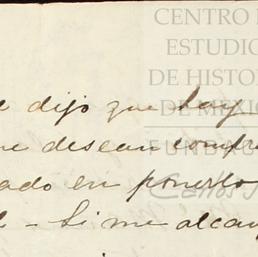 CENTRO
ESTUDIO
DE HISTO
DE MÉXI
FUNDA
dijo que hay
desean compr
ado en ponerlo
Carlos
- Si me alcan